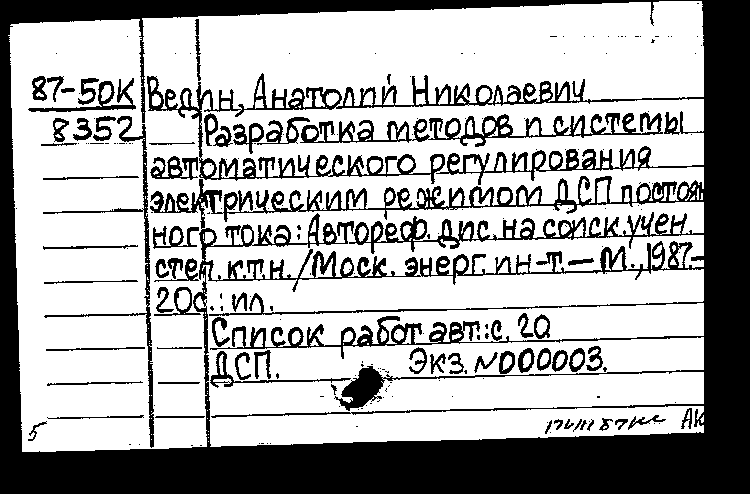 87-50К Ведин, Анатолий Николаевич
8352 Разработка методов и системы
автоматического регулирования
электрическим режимом ДСП постоян
ного тока: Автореф. дис. на соиск. учен.
степ. к.т.н. / Моск. энерг. ин-т. — М., 1987.-
20с.: ил.
Список работ авт.: с. 20
ДСП. Экз. №000003.
5 АК